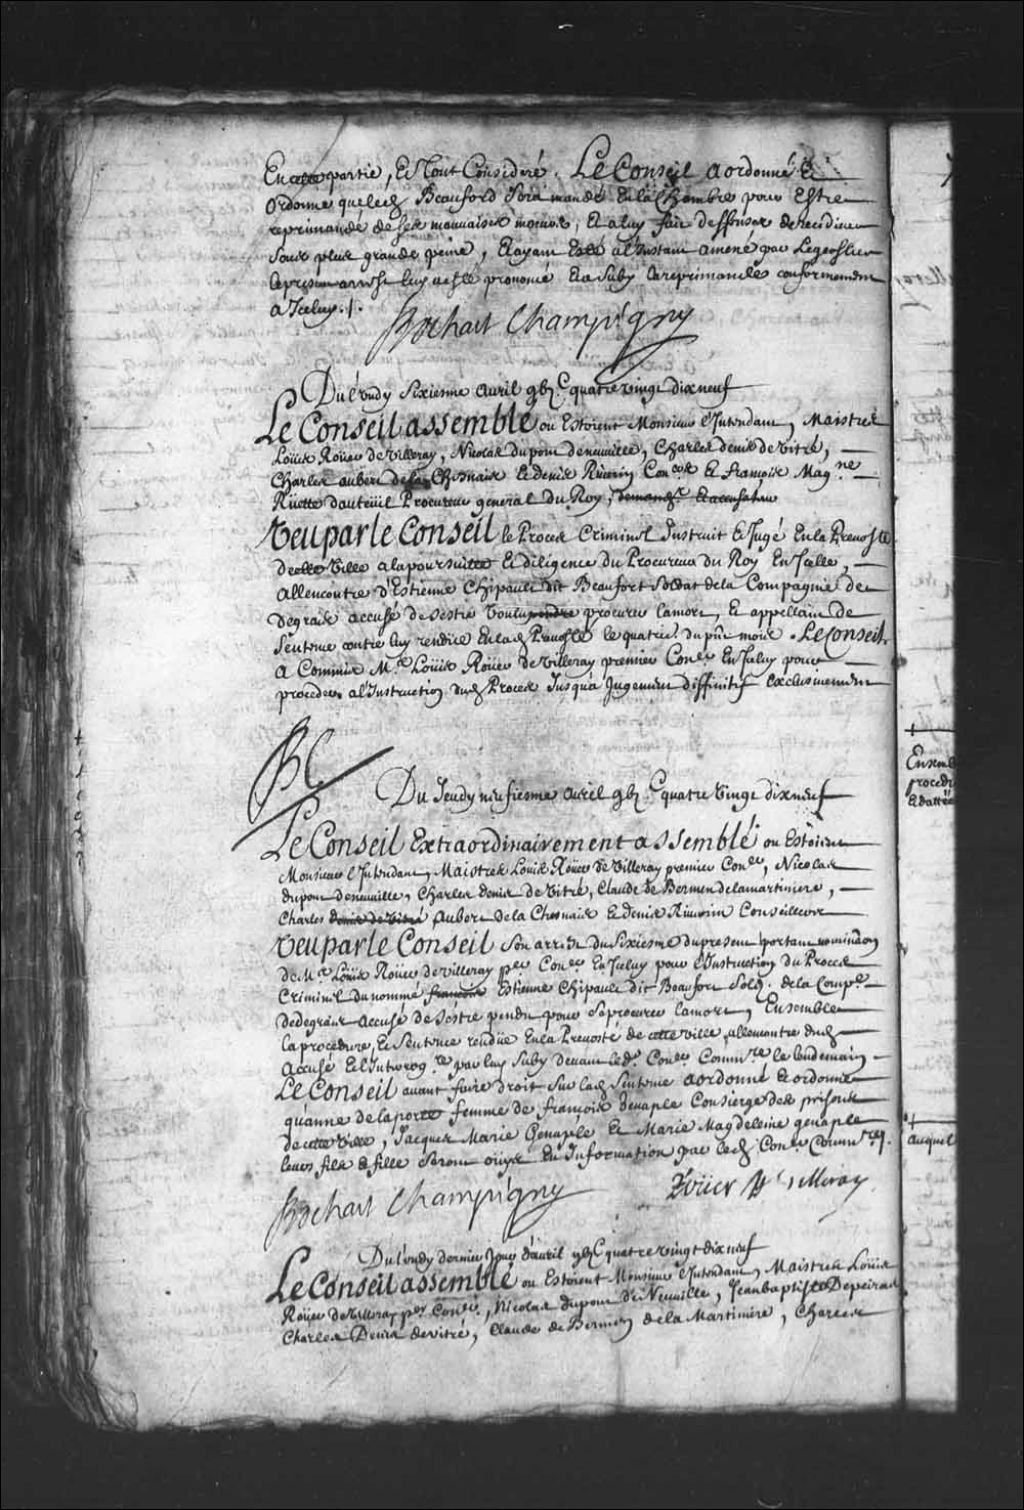 En cette partie, Et Tout Consideré. Le Conseil a ordonné Et
ordonne que led Beauford sera mandé En la Chambre pour Estre
reprimandé de ses mauvaises moeurs, Et a luy fait deffenses de recidiver
sous plus grande peine, Et ayant Esté a l'Instant amené par Le geollier
le present arrest luy a esté prononcé Et a suby la reprimande conformement
a Iceluy ./.
Bochart Champigny
Du lundy sixiesme avril gbic quatre vingt dix neuf
Le Conseil assemblé ou Estoient Monsieur l'Intendant, Maistres
Loüis Roüer de Villeray, Nicolas dupont deneuville, Charles denis de Vitré,
Charles aubert de la Chesnaie Et denis Riverin Coners Et françois Magne
Rüette dauteüil Procureur general du Roy, demandr Et accusateur
Veu par le Conseil le Proces Criminel Instruit Et Jugé En la Prevosté
de cette Ville a la poursuitte Et diligence du Procureur du Roy En Icelle,
allencontre d'Estienne Chipault dit Beaufort soldat de la Compagnie de
degrais accusé de s'estre voulu pendre procurer la mort, Et appellant de
sentence contre luy rendüe En lad Prevosté le quatre du pnt mois. Le Conseil
a Commis Me Loüis Roüer de Villeray premier Coner En Iceluy pour
proceder a l'Instruction dud Proces Jusqu'a Jugement diffinitif Exclusivement
BC
Du Jeudy neufiesme avril gbic quatre vingt dix neuf
Le Conseil Extraordinairement assemblé ou Estoient
Monsieur l'Intendant, Maistres Loüis Roüer de Villeray premier Coner, Nicolas
dupont deneuville, Charles denis de Vitré, Claude de Bermen delamartiniere,
Charles denis de Vitré Aubert de la Chesnaie Et denis Riverin Conseillers
Veu par le Conseil son arrest du Sixiesme du present portant nomination
de Me Loüis Roüer de Villeray per Coner En Iceluy pour l'Instruction du Proces
Criminel du nommé françois Estienne Chipault dit Beaufort sold. de la Compe
dedegrais accusé de s'estre pendu pour se procurer la mort, Ensemble
la procedure, Et Sentence rendüe En la Prevosté de cette ville, allencontre dud
accusé Et l'Interrogre par luy suby devant led. Coner Commre le lendemain
Le Conseil avant faire droit sur lad Sentence a ordonné Et ordonne
qu'anne de laporte femme de françois Genaple Consierge des prisons
de cette Ville, Jacques Marie Genaple Et Marie Magdeleine genaple
leurs fils Et fille seront oüys En Information par led Coner Commre
Bochart Champigny Roüer de Villeray
Du lundy dernier Jour d'avril gbic quatre vingt dix neuf
Le Conseil assemblé ou Estoient Monsieur l'Intendant, Maistres Loüis
Roüer de Villeray per Coner, Nicolas dupont de Neuville, Jean baptiste Depeiras
Charles Denis de vitré, Claude de Bermen de la Martiniere, Charles
Ensemb
procedu
auquel